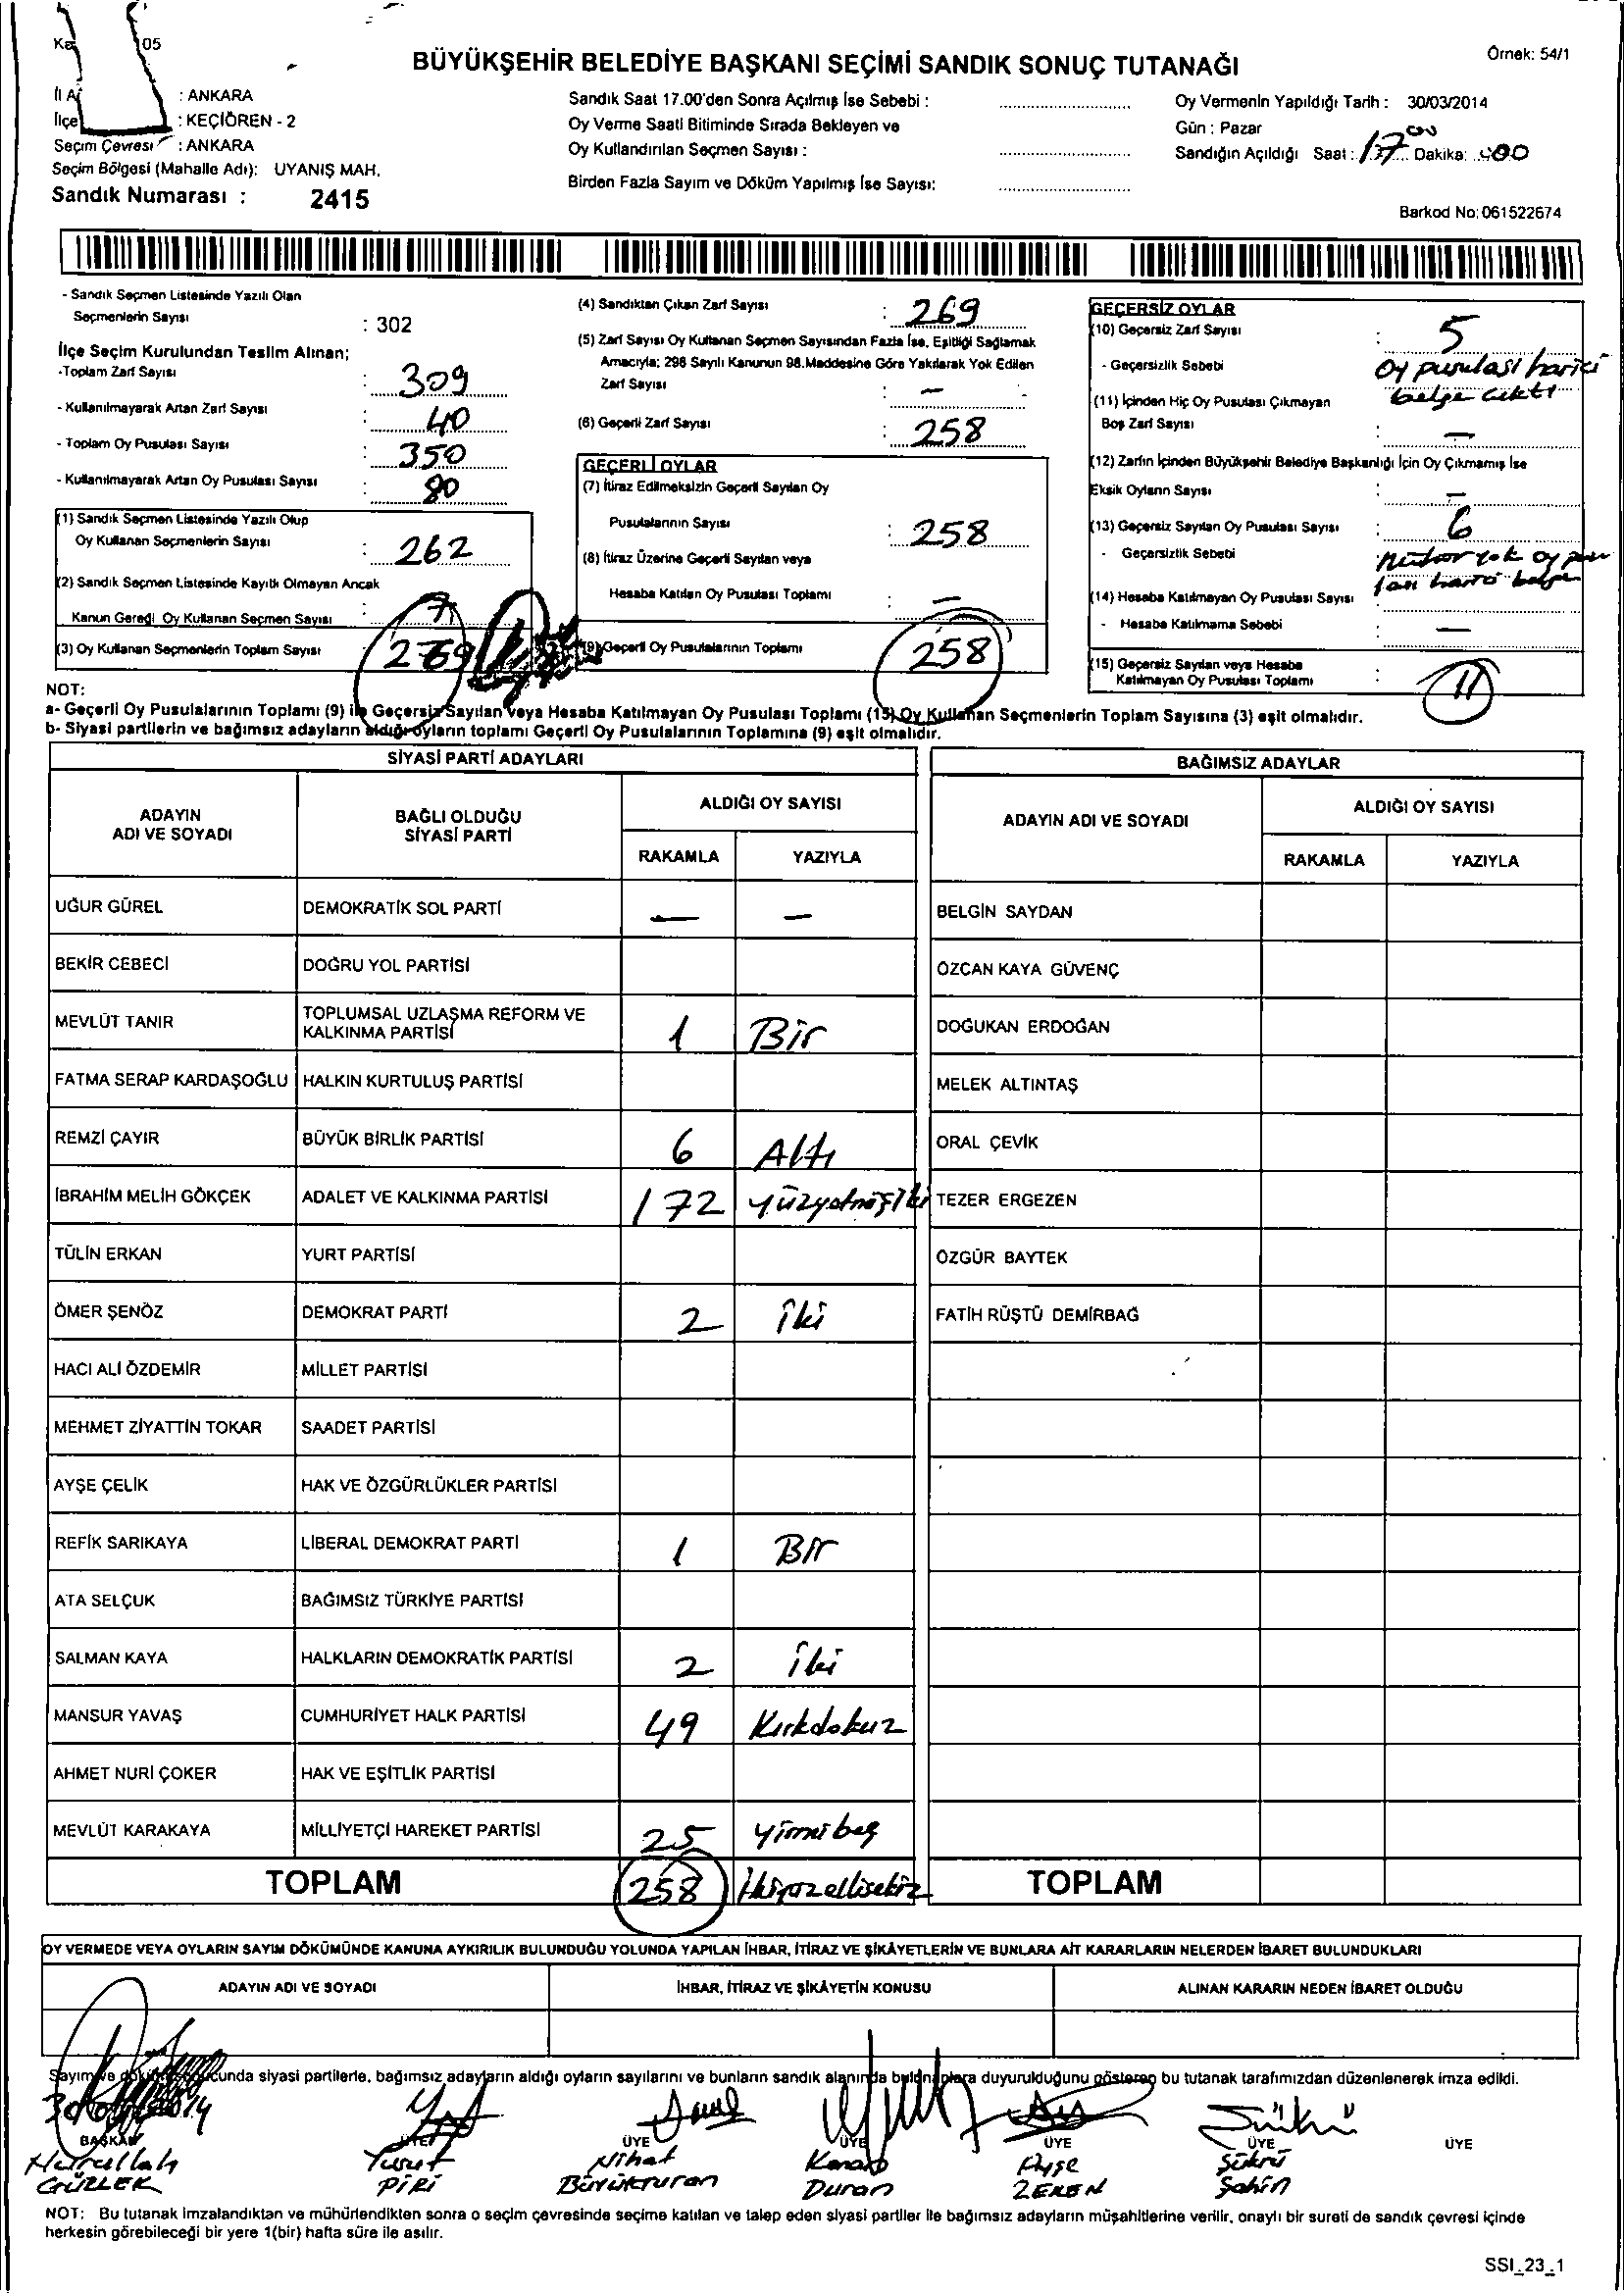 05
Örnek: 54/1
BÜYÜKŞEHİR BELEDİYE BAŞKANI SEÇİMİ SANDIK SONUÇ TUTANAĞI
: ANKARA
: KEÇİÖREN - 2
Seçim Çevresi : ANKARA
Seçim Bölgesi (Mahalle Adı): UYANIŞ MAH.
Sandık Numarası : 2415
Sandık Saat 17.00'den Sonra Açılmış İse Sebebi :
Oy Verme Saati Bitiminde Sırada Bekleyen ve
Oy Kullandırılan Seçmen Sayısı :
Birden Fazla Sayım ve Döküm Yapılmış İse Sayısı:
Oy Vermenin Yapıldığı Tarih : 30/03/2014
Gün : Pazar
Sandığın Açıldığı Saat : 17 Dakika: 00
Barkod No: 061522674
- Sandık Seçmen Listesinde Yazılı Olan
Seçmenlerin Sayısı : 302
İlçe Seçim Kurulundan Teslim Alınan;
-Toplam Zarf Sayısı : 309
- Kullanılmayarak Artan Zarf Sayısı : 40
- Toplam Oy Pusulası Sayısı : 350
- Kullanılmayarak Artan Oy Pusulası Sayısı : 80
(1) Sandık Seçmen Listesinde Yazılı Olup
Oy Kullanan Seçmenlerin Sayısı : 262
(2) Sandık Seçmen Listesinde Kayıtlı Olmayan Ancak
Kanun Gereği Oy Kullanan Seçmen Sayısı : 7
(3) Oy Kullanan Seçmenlerin Toplam Sayısı 269
(4) Sandıktan Çıkan Zarf Sayısı : 269
(5) Zarf Sayısı Oy Kullanan Seçmen Sayısından Fazla İse, Eşitliği Sağlamak
Amacıyla; 298 Sayılı Kanunun 98.Maddesine Göre Yakılarak Yok Edilen
Zarf Sayısı : —
(6) Geçerli Zarf Sayısı : 258
GEÇERLİ OYLAR
(7) İtiraz Edilmeksizin Geçerli Sayılan Oy
Pusulalarının Sayısı : 258
(8) İtiraz Üzerine Geçerli Sayılan veya
Hesaba Katılan Oy Pusulası Toplamı : —
(9) Geçerli Oy Pusulalarının Toplamı 258
GEÇERSİZ OYLAR
(10) Geçersiz Zarf Sayısı : 5
- Geçersizlik Sebebi Oy pusulası harici
belge çıktı
(11) İçinden Hiç Oy Pusulası Çıkmayan
Boş Zarf Sayısı : —
(12) Zarfın İçinden Büyükşehir Belediye Başkanlığı İçin Oy Çıkmamış İse
Eksik Oyların Sayısı : —
(13) Geçersiz Sayılan Oy Pusulası Sayısı : 6
- Geçersizlik Sebebi mühür yok oy
(14) Hesaba Katılmayan Oy Pusulası Sayısı :
- Hesaba Katılmama Sebebi —
(15) Geçersiz Sayılan veya Hesaba
Katılmayan Oy Pusulası Toplamı : 11
NOT:
a- Geçerli Oy Pusulalarının Toplamı (9) ile Geçersiz Sayılan Veya Hesaba Katılmayan Oy Pusulası Toplamı (15) Oy Kullanan Seçmenlerin Toplam Sayısına (3) eşit olmalıdır.
b- Siyasi partilerin ve bağımsız adayların aldığı oyların toplamı Geçerli Oy Pusulalarının Toplamına (9) eşit olmalıdır.
SİYASİ PARTİ ADAYLARI
ADAYIN ADI VE SOYADI BAĞLI OLDUĞU SİYASİ PARTİ ALDIĞI OY SAYISI
RAKAMLA YAZIYLA
UĞUR GÜREL DEMOKRATİK SOL PARTİ — —
BEKİR CEBECİ DOĞRU YOL PARTİSİ
MEVLÜT TANIR TOPLUMSAL UZLAŞMA REFORM VE KALKINMA PARTİSİ 1 Bir
FATMA SERAP KARDAŞOĞLU HALKIN KURTULUŞ PARTİSİ
REMZİ ÇAYIR BÜYÜK BİRLİK PARTİSİ 6 Altı
İBRAHİM MELİH GÖKÇEK ADALET VE KALKINMA PARTİSİ 172 yüzyetmişiki
TÜLİN ERKAN YURT PARTİSİ
ÖMER ŞENÖZ DEMOKRAT PARTİ 2 iki
HACI ALİ ÖZDEMİR MİLLET PARTİSİ
MEHMET ZİYATTİN TOKAR SAADET PARTİSİ
AYŞE ÇELİK HAK VE ÖZGÜRLÜKLER PARTİSİ
REFİK SARIKAYA LİBERAL DEMOKRAT PARTİ 1 Bir
ATA SELÇUK BAĞIMSIZ TÜRKİYE PARTİSİ
SALMAN KAYA HALKLARIN DEMOKRATİK PARTİSİ 2 iki
MANSUR YAVAŞ CUMHURİYET HALK PARTİSİ 49 Kırkdokuz
AHMET NURİ ÇOKER HAK VE EŞİTLİK PARTİSİ
MEVLÜT KARAKAYA MİLLİYETÇİ HAREKET PARTİSİ 25 yirmibeş
TOPLAM 258 ikiyüzellisekiz
BAĞIMSIZ ADAYLAR
ADAYIN ADI VE SOYADI ALDIĞI OY SAYISI
RAKAMLA YAZIYLA
BELGİN SAYDAN
ÖZCAN KAYA GÜVENÇ
DOĞUKAN ERDOĞAN
MELEK ALTINTAŞ
ORAL ÇEVİK
TEZER ERGEZEN
ÖZGÜR BAYTEK
FATİH RÜŞTÜ DEMİRBAĞ
TOPLAM
OY VERMEDE VEYA OYLARIN SAYIM DÖKÜMÜNDE KANUNA AYKIRILIK BULUNDUĞU YOLUNDA YAPILAN İHBAR, İTİRAZ VE ŞİKÂYETLERİN VE BUNLARA AİT KARARLARIN NELERDEN İBARET BULUNDUKLARI
ADAYIN ADI VE SOYADI İHBAR, İTİRAZ VE ŞİKÂYETİN KONUSU ALINAN KARARIN NEDEN İBARET OLDUĞU
Sayım ve döküm sonucunda siyasi partilerle, bağımsız adayların aldığı oyların sayılarını ve bunların sandık alanında bulunanlara duyurulduğunu gösteren bu tutanak tarafımızdan düzenlenerek imza edildi.
BAŞKAN ÜYE ÜYE ÜYE ÜYE ÜYE ÜYE
Nurullah Yusuf Nihat Kenan Ayşe Şükrü
GÜRLEK PİRİ Büyükturan Duran ZEREN Şahin
NOT: Bu tutanak imzalandıktan ve mühürlendikten sonra o seçim çevresinde seçime katılan ve talep eden siyasi partiler ile bağımsız adayların müşahitlerine verilir, onaylı bir sureti de sandık çevresi içinde
herkesin görebileceği bir yere 1(bir) hafta süre ile asılır.
SSI_23_1